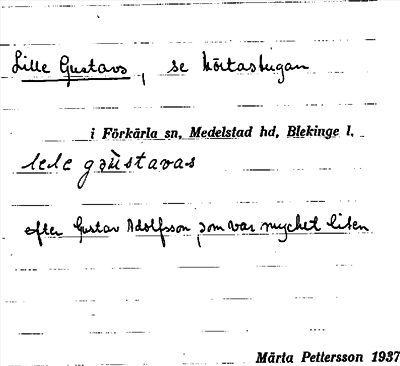 Lille Gustavs, se Körtastugan
i Förkärla sn, Medelstad hd, Blekinge l.
lele gustavas
efter Gustav Adolfsson som var mycket liten
Märta Pettersson 1937